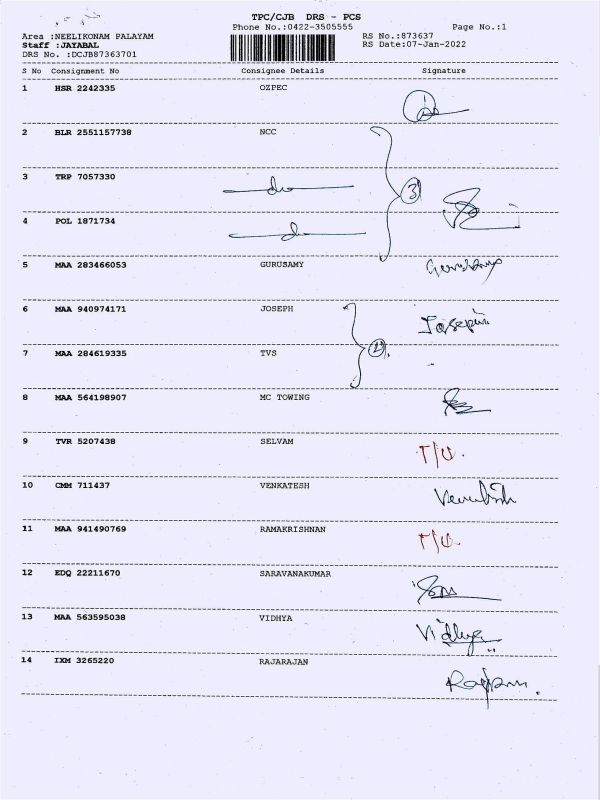 TPC/CJB DRS - PCS
Phone No.:0422-3505555 Page No.:1
Area :NEELIKONAM PALAYAM RS No.:873637
Staff :JAYABAL RS Date:07-Jan-2022
DRS No. :DCJB87363701
S No Consignment No Consignee Details Signature
1 HSR 2242335 OZPEC
2 BLR 2551157738 NCC
3 TRP 7057330 do 3
4 POL 1871734 do
5 MAA 283466053 GURUSAMY Gurusamy
6 MAA 940974171 JOSEPH Joseph
7 MAA 284619335 TVS 2
8 MAA 564198907 MC TOWING
9 TVR 5207438 SELVAM T/U.
10 CMM 711437 VENKATESH
11 MAA 941490769 RAMAKRISHNAN T/U.
12 EDQ 22211670 SARAVANAKUMAR
13 MAA 563595038 VIDHYA Vidhya
14 IXM 3265220 RAJARAJAN